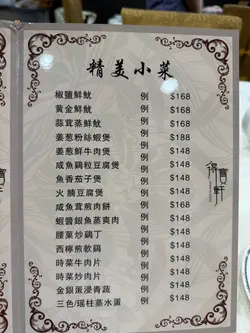 精美小菜
椒鹽鮮魷 例 $168
黃金鮮魷 例 $168
蒜茸蒸鮮魷 例 $168
姜葱粉絲蝦煲 例 $188
姜葱鮮牛肉煲 例 $148
咸魚鷄粒豆腐煲 例 $148
魚香茄子煲 例 $148
火腩豆腐煲 例 $148
咸魚茸煎肉餅 例 $168
蝦醬銀魚蒸爽肉 例 $148
腰菓炒鷄丁 例 $148
西檸煎軟鷄 例 $148
時菜牛肉片 例 $148
時菜炒肉片 例 $148
金銀蛋浸青蔬 例 $148
三色/瑤柱蒸水蛋 例 $148
寶軒